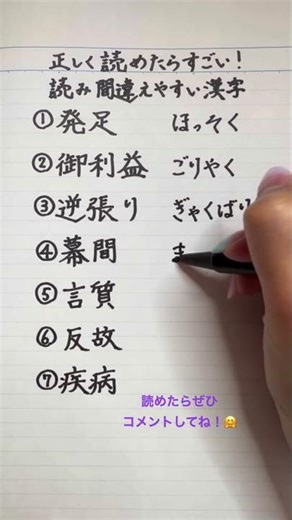 正しく読めたらすごい！
読み間違えやすい漢字
①発足 ほっそく
②御利益 ごりやく
③逆張り ぎゃくばり
④幕間 ま
⑤言質
⑥反故
⑦疾病
読めたらぜひ
コメントしてね！🤗